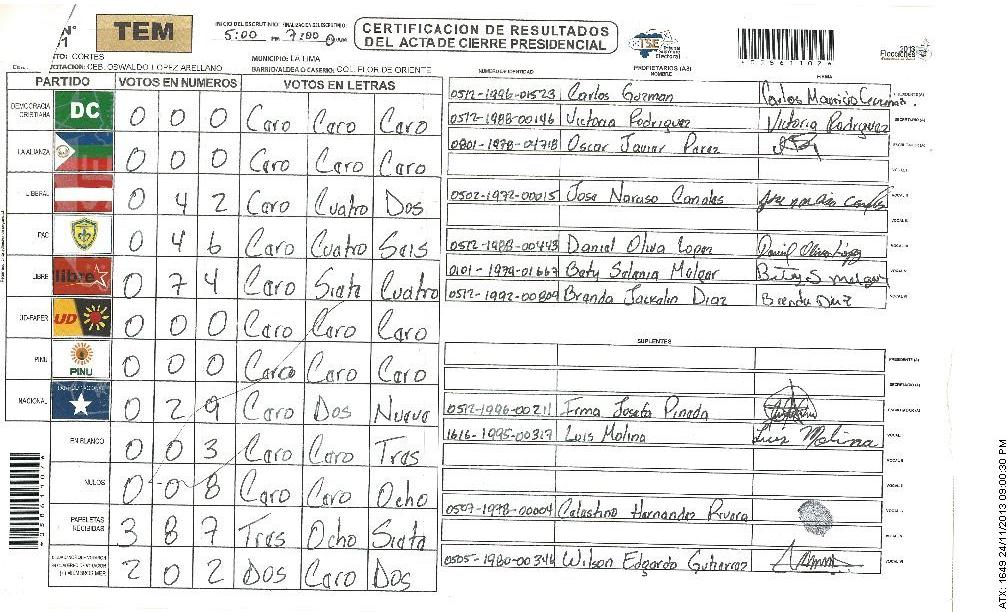 TEM
INICIO DEL ESCRUTINIO: 5:00 PM FINALIZACION DEL ESCRUTINIO: 7:00
CERTIFICACION DE RESULTADOS
DEL ACTA DE CIERRE PRESIDENCIAL
TSE
2013
Elecciones
CORTES
MUNICIPIO: LA LIMA
CEB. OSWALDO LOPEZ ARELLANO
BARRIO/ALDEA O CASERIO: COL. FLOR DE ORIENTE
PARTIDO VOTOS EN NUMEROS VOTOS EN LETRAS
DEMOCRACIA CRISTIANA DC 0 0 0 Caro Caro Caro
LA ALIANZA 0 0 0 Caro Caro Caro
LIBERAL 0 4 2 Caro Cuatro Dos
PAC 0 4 6 Caro Cuatro Sais
LIBRE libre 0 7 4 Caro Siata Cuatro
UD-FAPER UD 0 0 0 Caro Caro Caro
PINU PINU 0 0 0 Carco Caro Caro
NACIONAL 0 2 9 Caro Dos Nueva
EN BLANCO 0 0 3 Caro Caro Tras
NULOS 0 0 8 Caro Caro Ocho
PAPELETAS RECIBIDAS 3 8 7 Tras Ocho Siata
2 0 2 Dos Caro Dos
NUMERO DE IDENTIDAD PROPIETARIOS (AS) NOMBRE FIRMA
0512-1996-01523 Carlos Guzman Carlos Mauricio Guzman PRESIDENTE(A)
0512-1988-00146 Victoria Rodriguez Victoria Rodriguez SECRETARIO(A)
0801-1978-01718 Oscar Javiar Paraz ESCRUTADOR(A)
VOCAL I
0502-1972-00015 Jose Narciso Canales VOCAL II
VOCAL III
0512-1988-00443 Daniel Oliva Lopez Daniel Oliva López
0101-1979-01667 Baty Salania Malgar Bety S melgar VOCAL V
0512-1992-00809 Branda Jackalin Diaz Brenda Diaz
SUPLENTES
PRESIDENTE (A)
SECRETARIO(A)
0512-1996-00211 Irma Josefa Pinada ESCRUTADOR(A)
1616-1995-00317 Luis Molina Luis Molina VOCAL I
VOCAL II
VOCAL III
0507-1978-00004 Calastino Harnandaz Rivara
VOCAL V
0505-1980-00346 Wilson Edgardo Gutiarraz
ATX: 1649 24/11/2013 09:00:30 PM